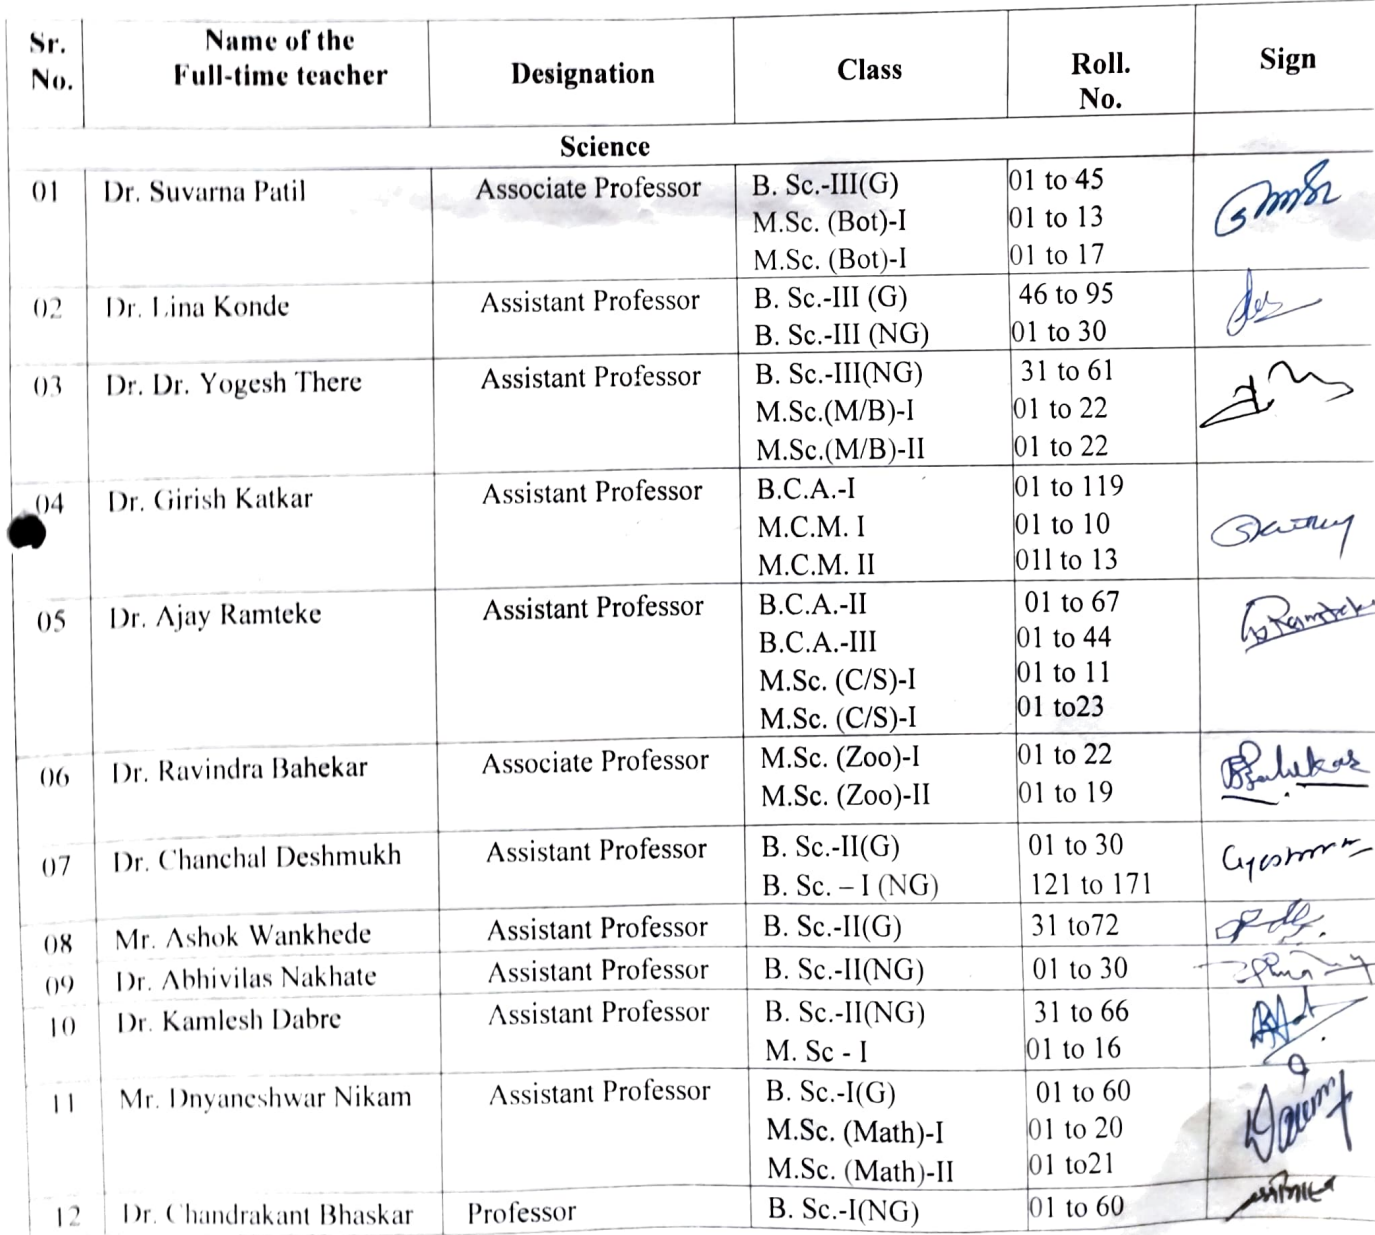 Sr. No. | Name of the Full-time teacher | Designation | Class | Roll. No. | Sign
Science
01 | Dr. Suvarna Patil | Associate Professor | B. Sc.-III(G) | 01 to 45
M.Sc. (Bot)-I | 01 to 13
M.Sc. (Bot)-I | 01 to 17
02 | Dr. Lina Konde | Assistant Professor | B. Sc.-III (G) | 46 to 95
B. Sc.-III (NG) | 01 to 30
03 | Dr. Dr. Yogesh There | Assistant Professor | B. Sc.-III(NG) | 31 to 61
M.Sc.(M/B)-I | 01 to 22
M.Sc.(M/B)-II | 01 to 22
04 | Dr. Girish Katkar | Assistant Professor | B.C.A.-I | 01 to 119
M.C.M. I | 01 to 10
M.C.M. II | 01l to 13
05 | Dr. Ajay Ramteke | Assistant Professor | B.C.A.-II | 01 to 67
B.C.A.-III | 01 to 44
M.Sc. (C/S)-I | 01 to 11
M.Sc. (C/S)-I | 01 to23
06 | Dr. Ravindra Bahekar | Associate Professor | M.Sc. (Zoo)-I | 01 to 22
M.Sc. (Zoo)-II | 01 to 19
07 | Dr. Chanchal Deshmukh | Assistant Professor | B. Sc.-II(G) | 01 to 30
B. Sc. – I (NG) | 121 to 171
08 | Mr. Ashok Wankhede | Assistant Professor | B. Sc.-II(G) | 31 to72
09 | Dr. Abhivilas Nakhate | Assistant Professor | B. Sc.-II(NG) | 01 to 30
10 | Dr. Kamlesh Dabre | Assistant Professor | B. Sc.-II(NG) | 31 to 66
M. Sc - I | 01 to 16
11 | Mr. Dnyaneshwar Nikam | Assistant Professor | B. Sc.-I(G) | 01 to 60
M.Sc. (Math)-I | 01 to 20
M.Sc. (Math)-II | 01 to21
12 | Dr. Chandrakant Bhaskar | Professor | B. Sc.-I(NG) | 01 to 60